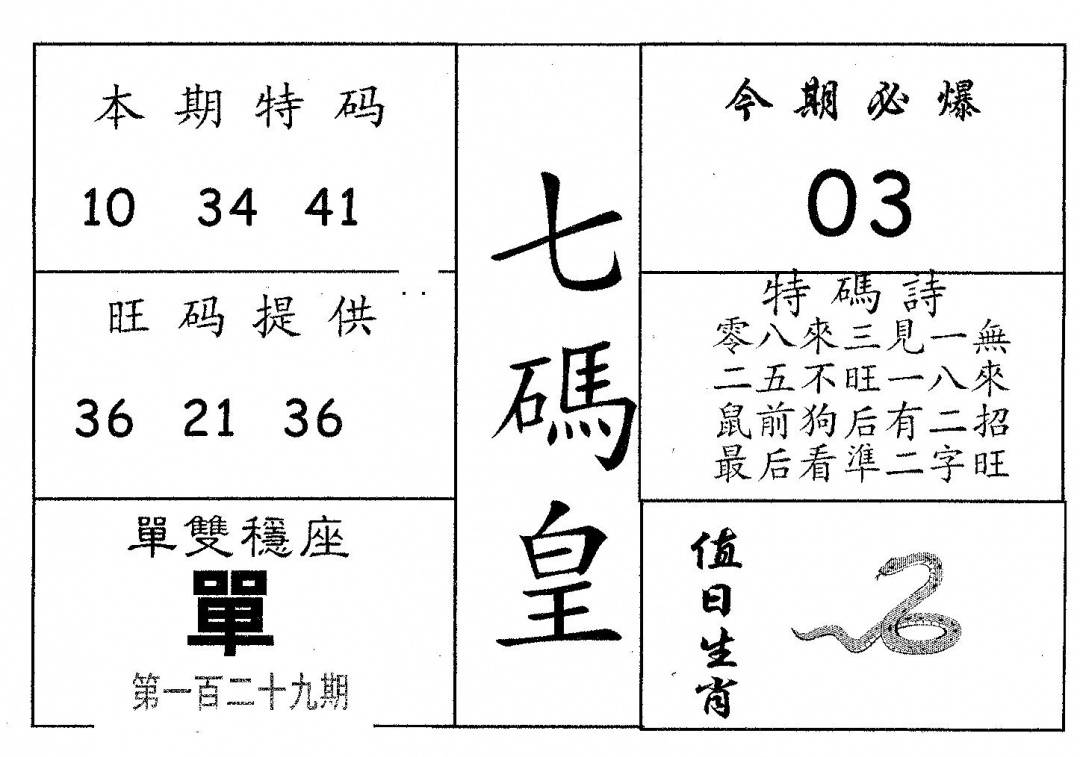 本期特码
10 34 41
旺码提供
36 21 36
單雙穩座
單
第一百二十九期
七碼皇
今期必爆
03
特碼詩
零八來三見一無
二五不旺一八來
鼠前狗后有二招
最后看準二字旺
值日生肖